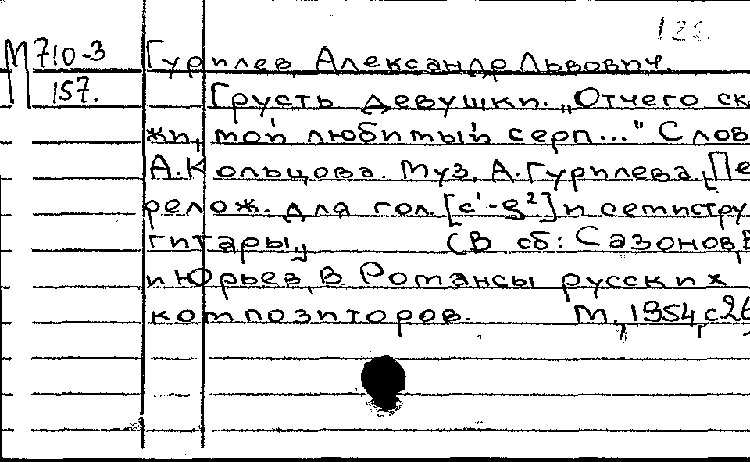 122.
М 710-3
157.
Гурилев, Александр Львович.
Грусть девушки. „Отчего ск
жи, мой любимый серп..." Слов
А. Кольцова. Муз. А. Гурилева. [Пе
релож. для гол. [c¹-g²] и семистру
гитары.
(В сб: Сазонов, В
и Юрьев, В Романсы русских
композиторов. М., 1954, с. 26